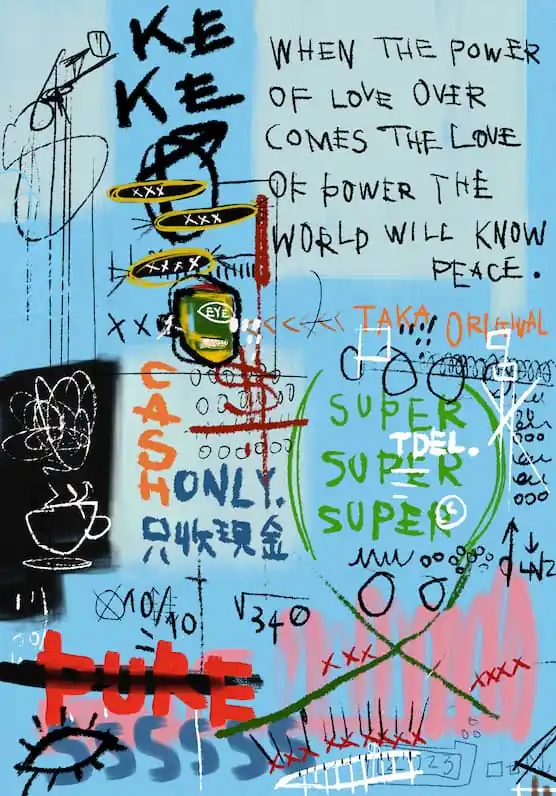 KE
KE
WHEN THE POWER
OF LOVE OVER
COMES THE LOVE
OF POWER THE
WORLD WILL KNOW
PEACE.
XXX
XXX
XXXX
EYE
XX
TAKA ORIGINAL
CASH
ONLY.
只收現金
$
SUPER
TDEL.
SUPER
SUPER
10/10
√340
4N2
PURE
SSSSSS
XXX
XXXX
XXX XX XXXX